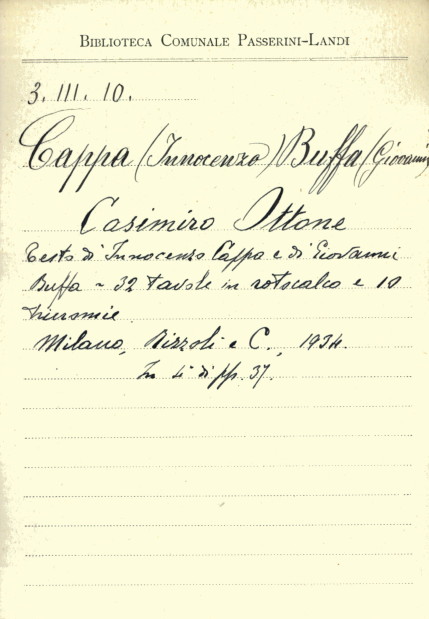 BIBLIOTECA COMUNALE PASSERINI-LANDI
3. III. 10.
Cappa (Innocenzo) Buffa (Giovanni)
Casimiro Ottone
Testo di Innocenzo Cappa e di Giovanni
Buffa - 32 tavole in rotocalco e 10
tricromie.
Milano, Rizzoli e C., 1934.
In 4° di pp. 37.